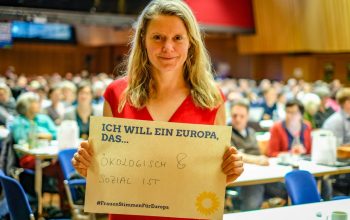 ICH WILL EIN EUROPA,
DAS...
ÖKOLOGISCH &
SOZIAL IST
#FrauenStimmenFürEuropa